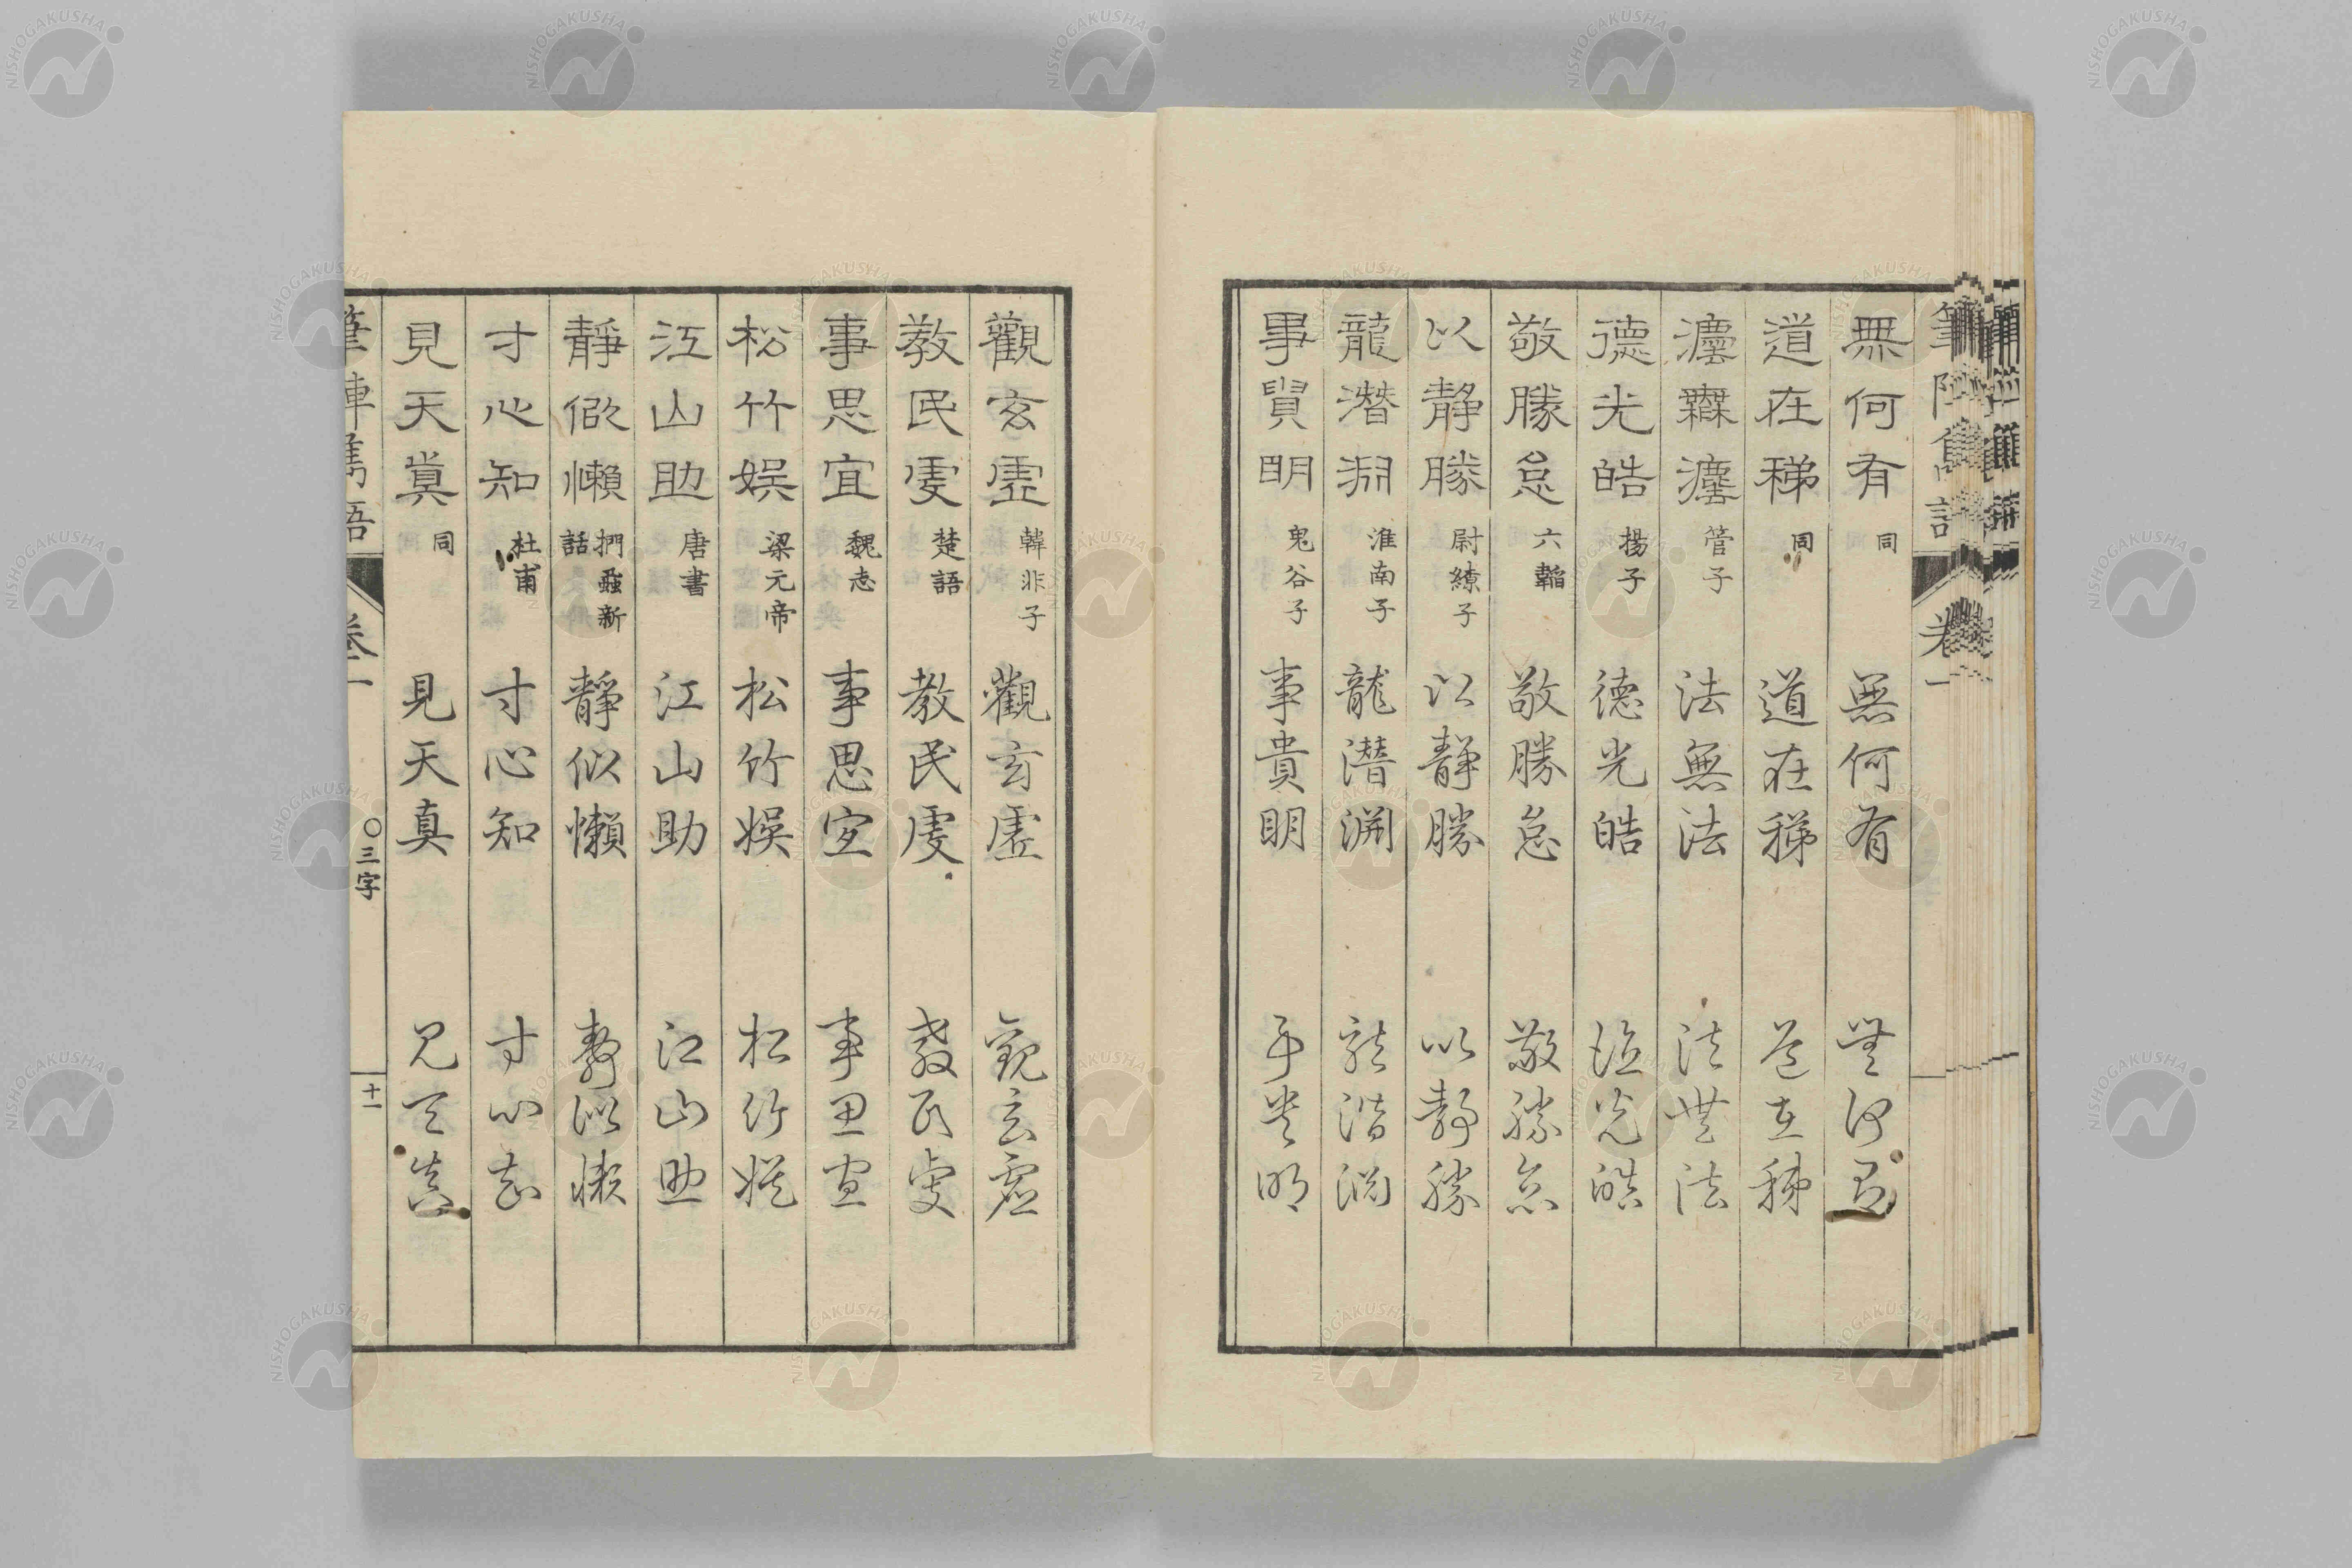 無何有 同 無何有 無何有
道在稊 同 道在稊 道在稊
灋無灋 管子 法無法 法無法
德光皓 揚子 德光皓 德光皓
敬勝怠 六韜 敬勝怠 敬勝怠
以静勝 尉繚子 以静勝 以静勝
龍潛淵 淮南子 龍潛淵 龍潛淵
事貴明 鬼谷子 事貴明 事貴明
觀玄虛 韓非子 觀玄虛 觀玄虛
教民虔 楚語 教民虔 教民虔
事思宜 魏志 事思宜 事思宜
松竹娛 梁元帝 松竹娛 松竹娛
江山助 唐書 江山助 江山助
靜似懶 捫蝨新話 靜似懶 靜似懶
寸心知 杜甫 寸心知 寸心知
見天真 同 見天真 見天真
筆陣雋語 卷一 〇三字 十一
NISHOGAKUSHA